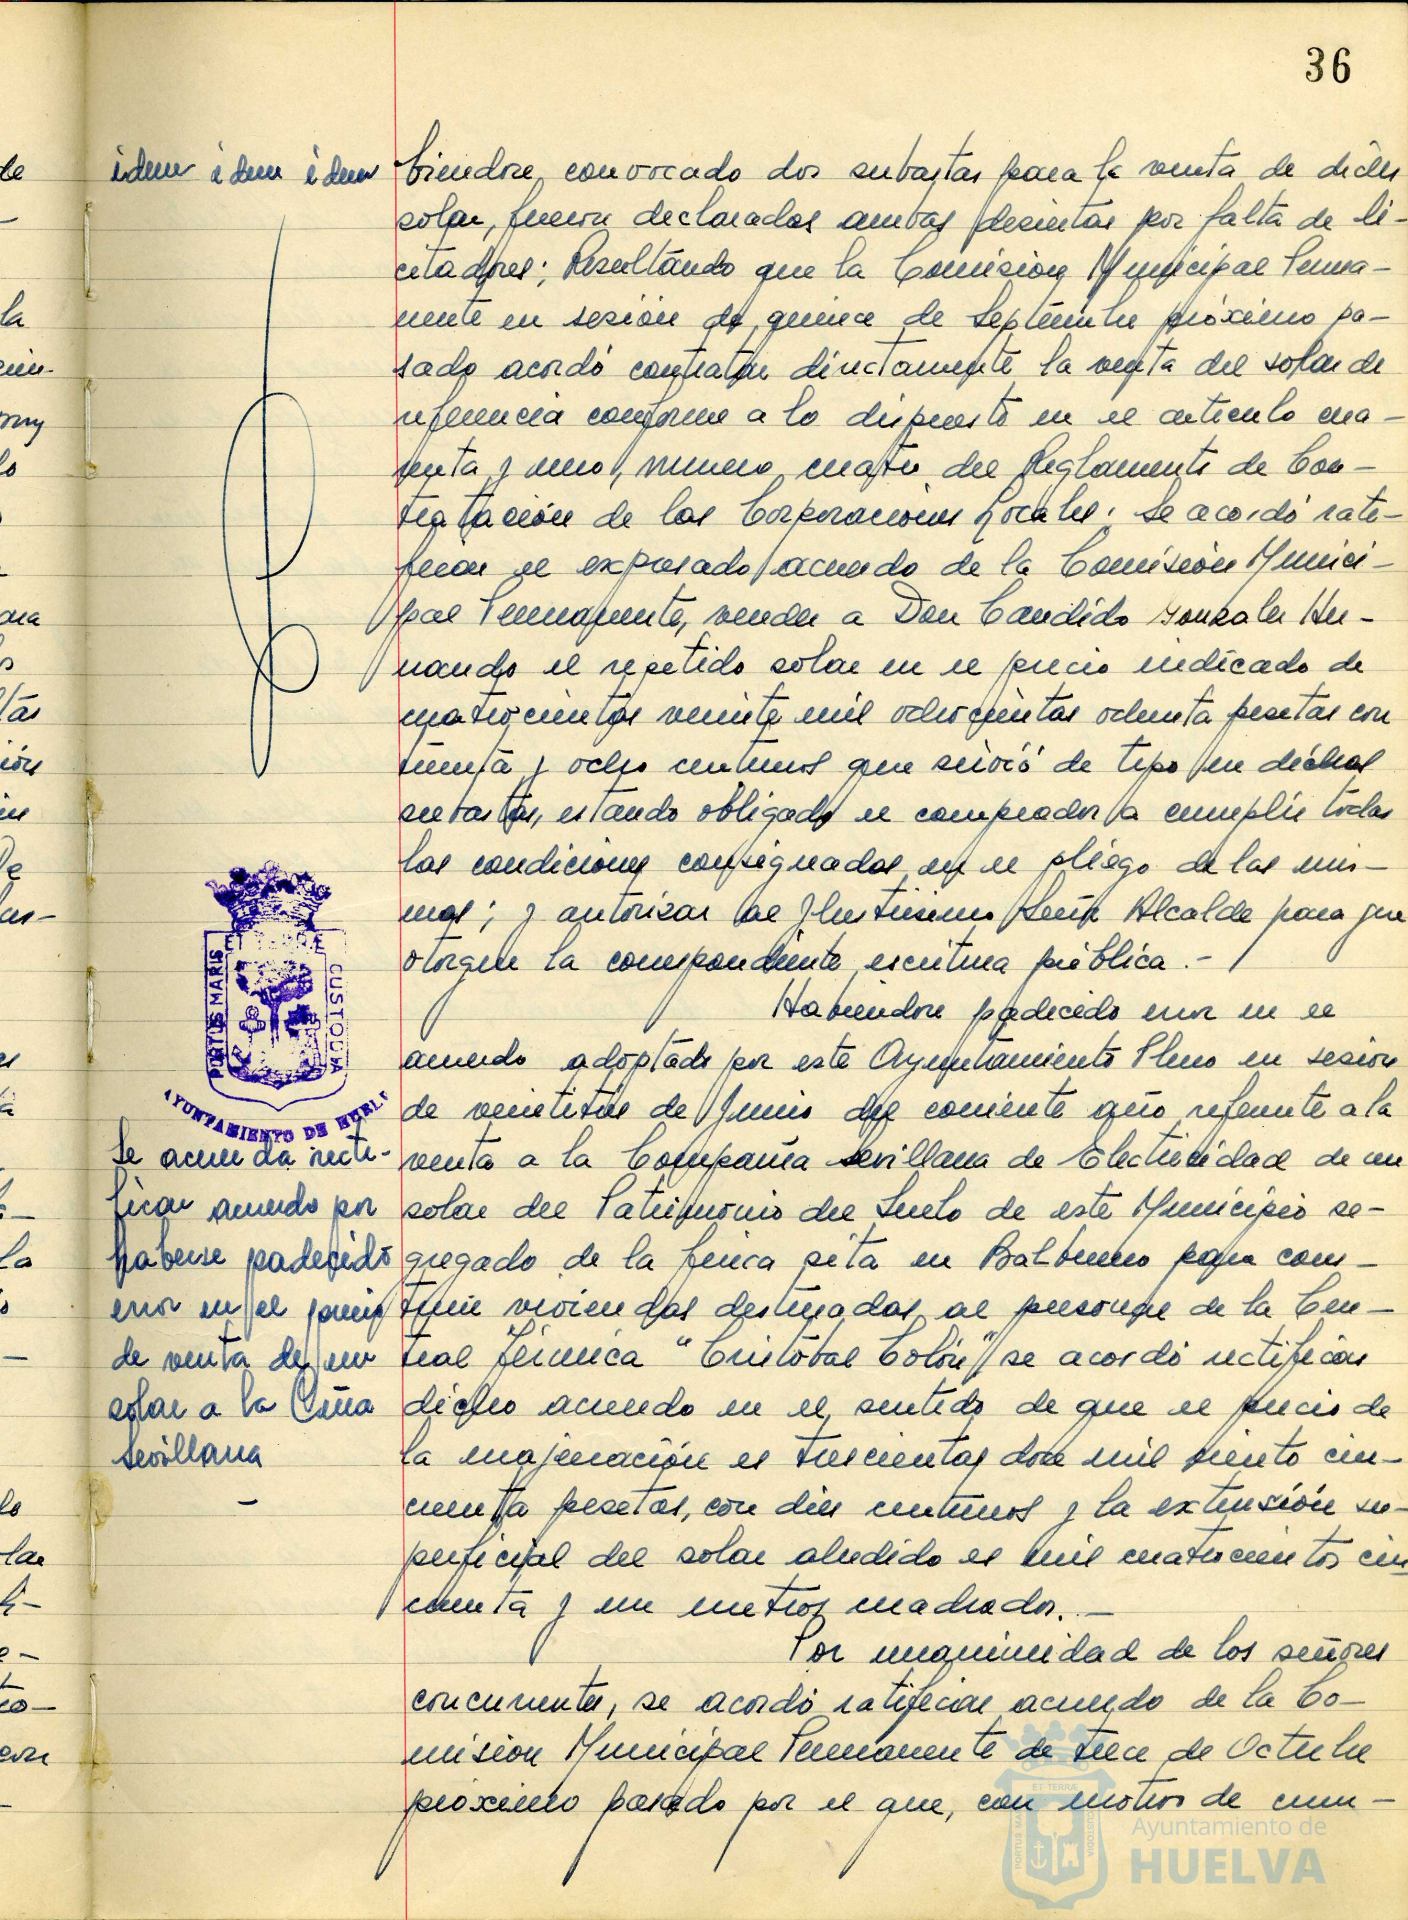 36
idem idem idem
biendose convocado dos subastas para la venta de dicho
solar, fueron declaradas ambas desiertas por falta de li-
citadores; Resultando que la Comision Municipal Perma-
nente en sesión de quince de Septiembre próximo pa-
sado acordó contratar directamente la venta del solar de
referencia conforme a lo dispuesto en el articulo cua-
renta y uno, numero cuatro del Reglamento de Con-
tratación de las Corporaciones Locales; se acordó rati-
ficar el expresado acuerdo de la Comisión Munici-
pal Permanente, vender a Don Candido Gonzalez Her-
nando el repetido solar en el precio indicado de
cuatrocientas veinte mil ochocientas ochenta pesetas con
treinta y ocho centimos que sirvió de tipo en dichas
subastas, estando obligado el comprador a cumplir todas
las condiciones consignadas en el pliego de las mis-
mas; y autorizar al Ilustrisimo Señor Alcalde para que
otorgue la correspondiente escritura pública.-
PORTUS MARIS
ET TERRÆ
CUSTODIA
AYUNTAMIENTO DE HUELVA
Se acuerda recti-
ficar acuerdo por
haberse padecido
error en el precio
de venta de un
solar a la Cñia
Sevillana
-
Habiendose padecido error en el
acuerdo adoptado por este Ayuntamiento Pleno en sesion
de veintitres de Junio del corriente año referente a la
venta a la Compañia Sevillana de Electricidad de un
solar del Patrimonio del Suelo de este Municipio se-
gregado de la finca sita en Balbueno para cons-
truir viviendas destinadas al personal de la Cen-
tral Térmica "Cristóbal Colón" se acordó rectificar
dicho acuerdo en el sentido de que el precio de
la enajenación es trescientas doce mil ciento cin-
cuenta pesetas, con diez centimos y la extensión su-
perficial del solar aludido es mil cuatrocientos cin
cuenta y un metros cuadrados.-
Por unanimidad de los señores
concurrentes, se acordó ratificar acuerdo de la Co-
mision Municipal Permanente de trece de Octubre
próximo pasado por el que, con motivo de cum-
Ayuntamiento de
HUELVA